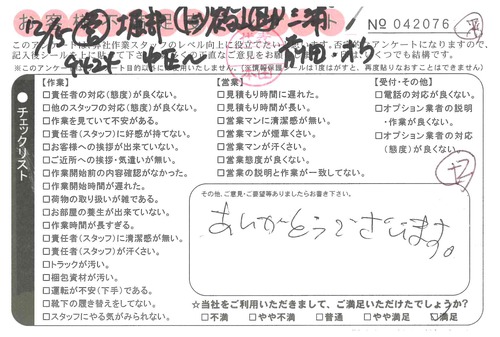 No 042076
このアンケートは弊社作業スタッフのレベル向上に役立て
記入後シールを上に被せて下さ
チェックリスト
【作業】
□責任者の対応(態度)が良くない。
□他のスタッフの対応(態度)が良くない。
□作業を見ていて不安がある。
□責任者(スタッフ)に好感が持てない。
□お客様への挨拶が出来ていない。
□ご近所への挨拶・気遣いが無い。
□作業開始前の内容確認がなかった。
□作業開始時間が遅れた。
□荷物の取り扱いが雑である。
□お部屋の養生が出来ていない。
□作業時間が長すぎる。
□責任者(スタッフ)に清潔感が無い。
□責任者(スタッフ)が汗くさい。
□トラックが汚い。
□梱包資材が汚い。
□運転が不安(下手)である。
□靴下の履き替えをしてない。
□スタッフにやる気がみられない。
【営業】
□見積もり時間に遅れた。
□見積もり時間が長い。
□営業マンに清潔感が無い。
□営業マンが煙草くさい。
□営業マンが汗くさい。
□営業態度が良くない。
□営業の説明と作業が一致してない。
【受付・その他】
□電話の対応が良くない。
□オプション業者の説明
・作業が良くない。
□オプション業者の対応
(態度)が良くない。
その他、ご意見・ご要望等ありましたらお書き下さい。
ありがとうございます。
☆当社をご利用いただきまして、ご満足いただけたでしょうか?
□不満 □やや不満 □普通 □やや満足 □満足